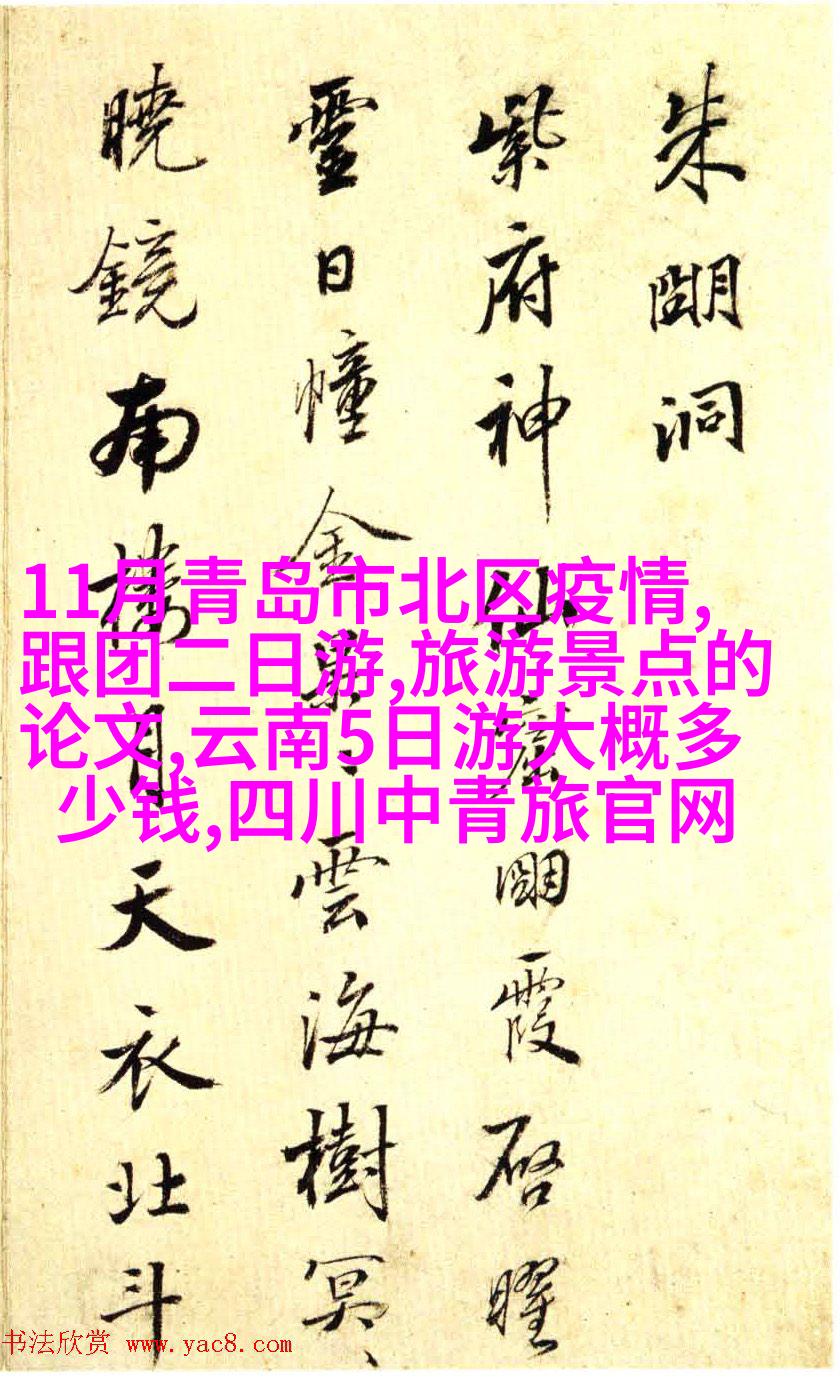 朱明洞
紫府神仙窟明霞启曜
靈日幢金
雲海樹冥
曉鏡南樓月天衣北斗
11月青岛市北区疫情,
跟团二日游,旅游景点的
论文,云南5日游大概多
少钱,四川中青旅官网
书法欣赏 www.yac8.com